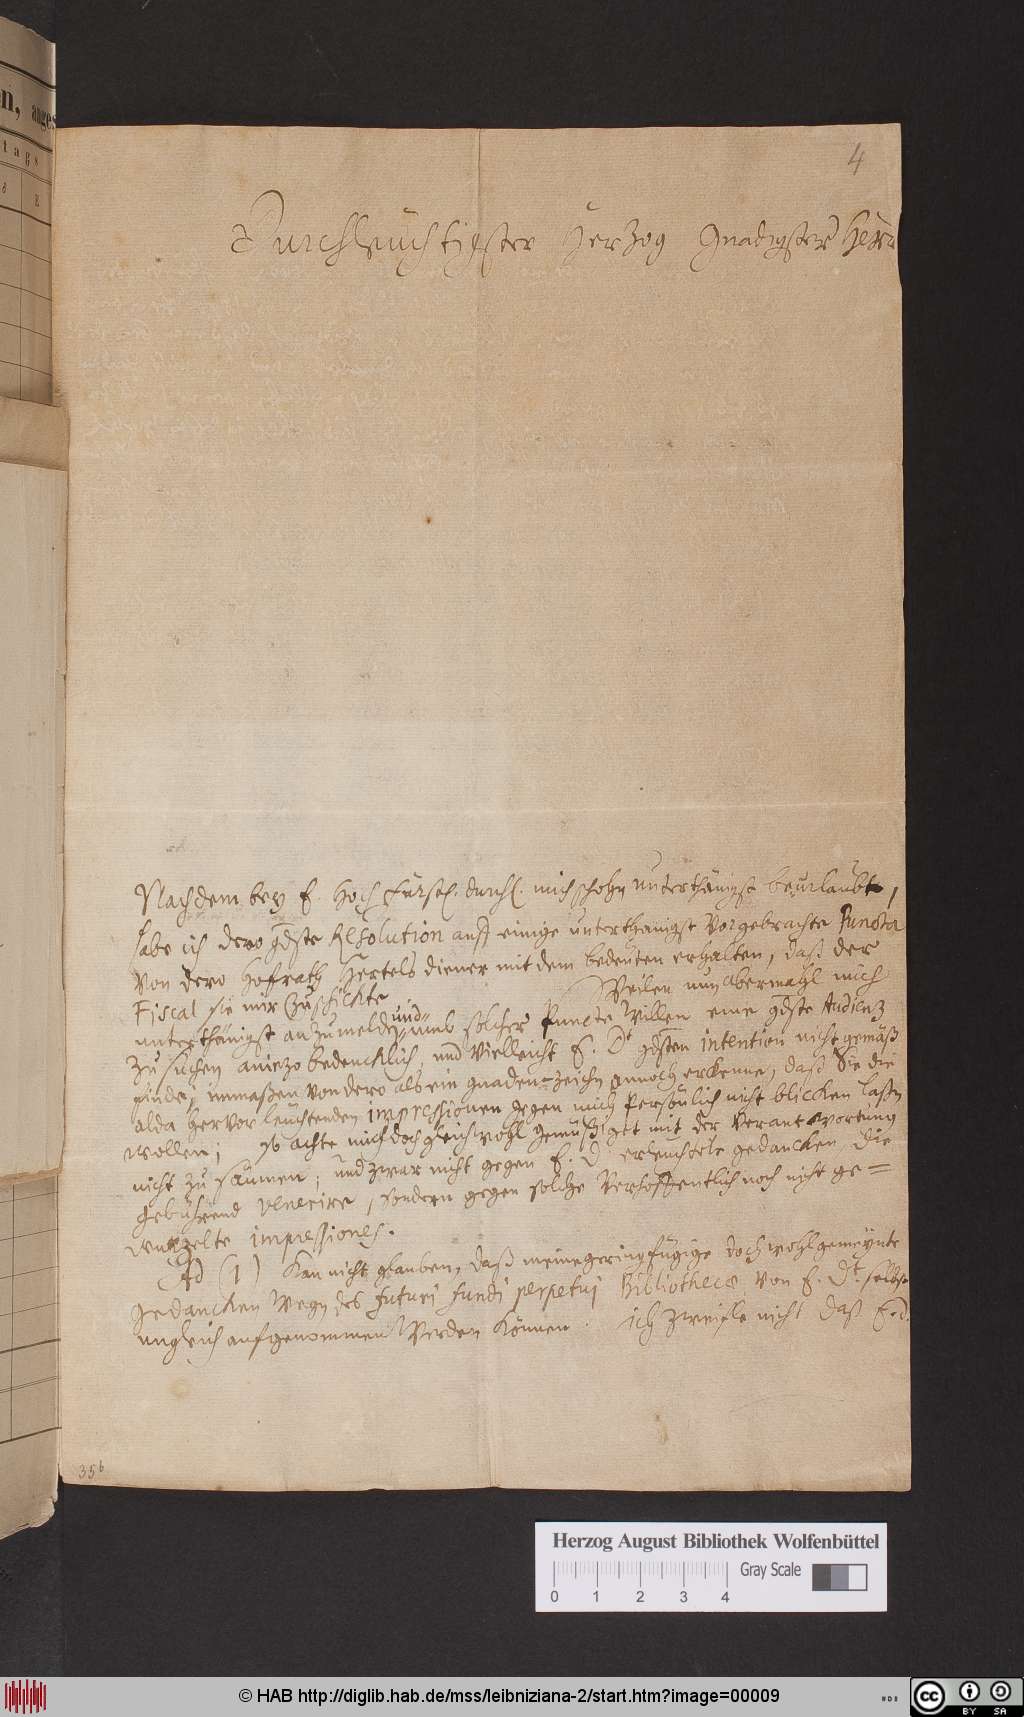 n, anges
tags
d E
4
Durchleuchtigster Herzog Gnädigster Herr
Nachdem bey E. Hoch Fürstl. durchl. mich schohn unterthänigst beurlaubt,
habe ich dero gdste Resolution auff einige unterthänigst vorgebrachte Puncta
von dero Hofrath Hertels diener mit dem bedeuten erhalten, daß der
Fiscal sie mir Zuschickte
Weilen nun abermahl mich
unterthänigst anzumelden, und umb solcher Puncte Willen eine gdste Audienz
zu suchen aniezo bedencklich, und vielleicht E. Dt gdsten intention nicht gemäß
finde, immaßen von dero als ein gnaden-zeichen annoch erkenne, daß Sie die
alda hervor leuchtenden impressionen gegen mich persönlich nicht blicken laßen
wollen; So achte mich doch gleichwohl gemüßiget mit der Verantwortung
nicht zu säumen; und zwar nicht gegen E. D. erleuchtete gedancken die
gebührend venerire, sondern gegen solche verhoffentlich noch nicht ge=
wurzelte impressiones.
Ad (1) Kan nicht glauben, daß meine geringfügige doch wohlgemeynte
gedancken wegen des futuri fundi perpetui Bibliothecae von E. Dt. selbst
ungleich aufgenommen Werden können. ich zweifle nicht daß E. D.
35b
Herzog August Bibliothek Wolfenbüttel
Gray Scale
0 1 2 3 4
© HAB http://diglib.hab.de/mss/leibniziana-2/start.htm?image=00009
HAB
cc BY SA